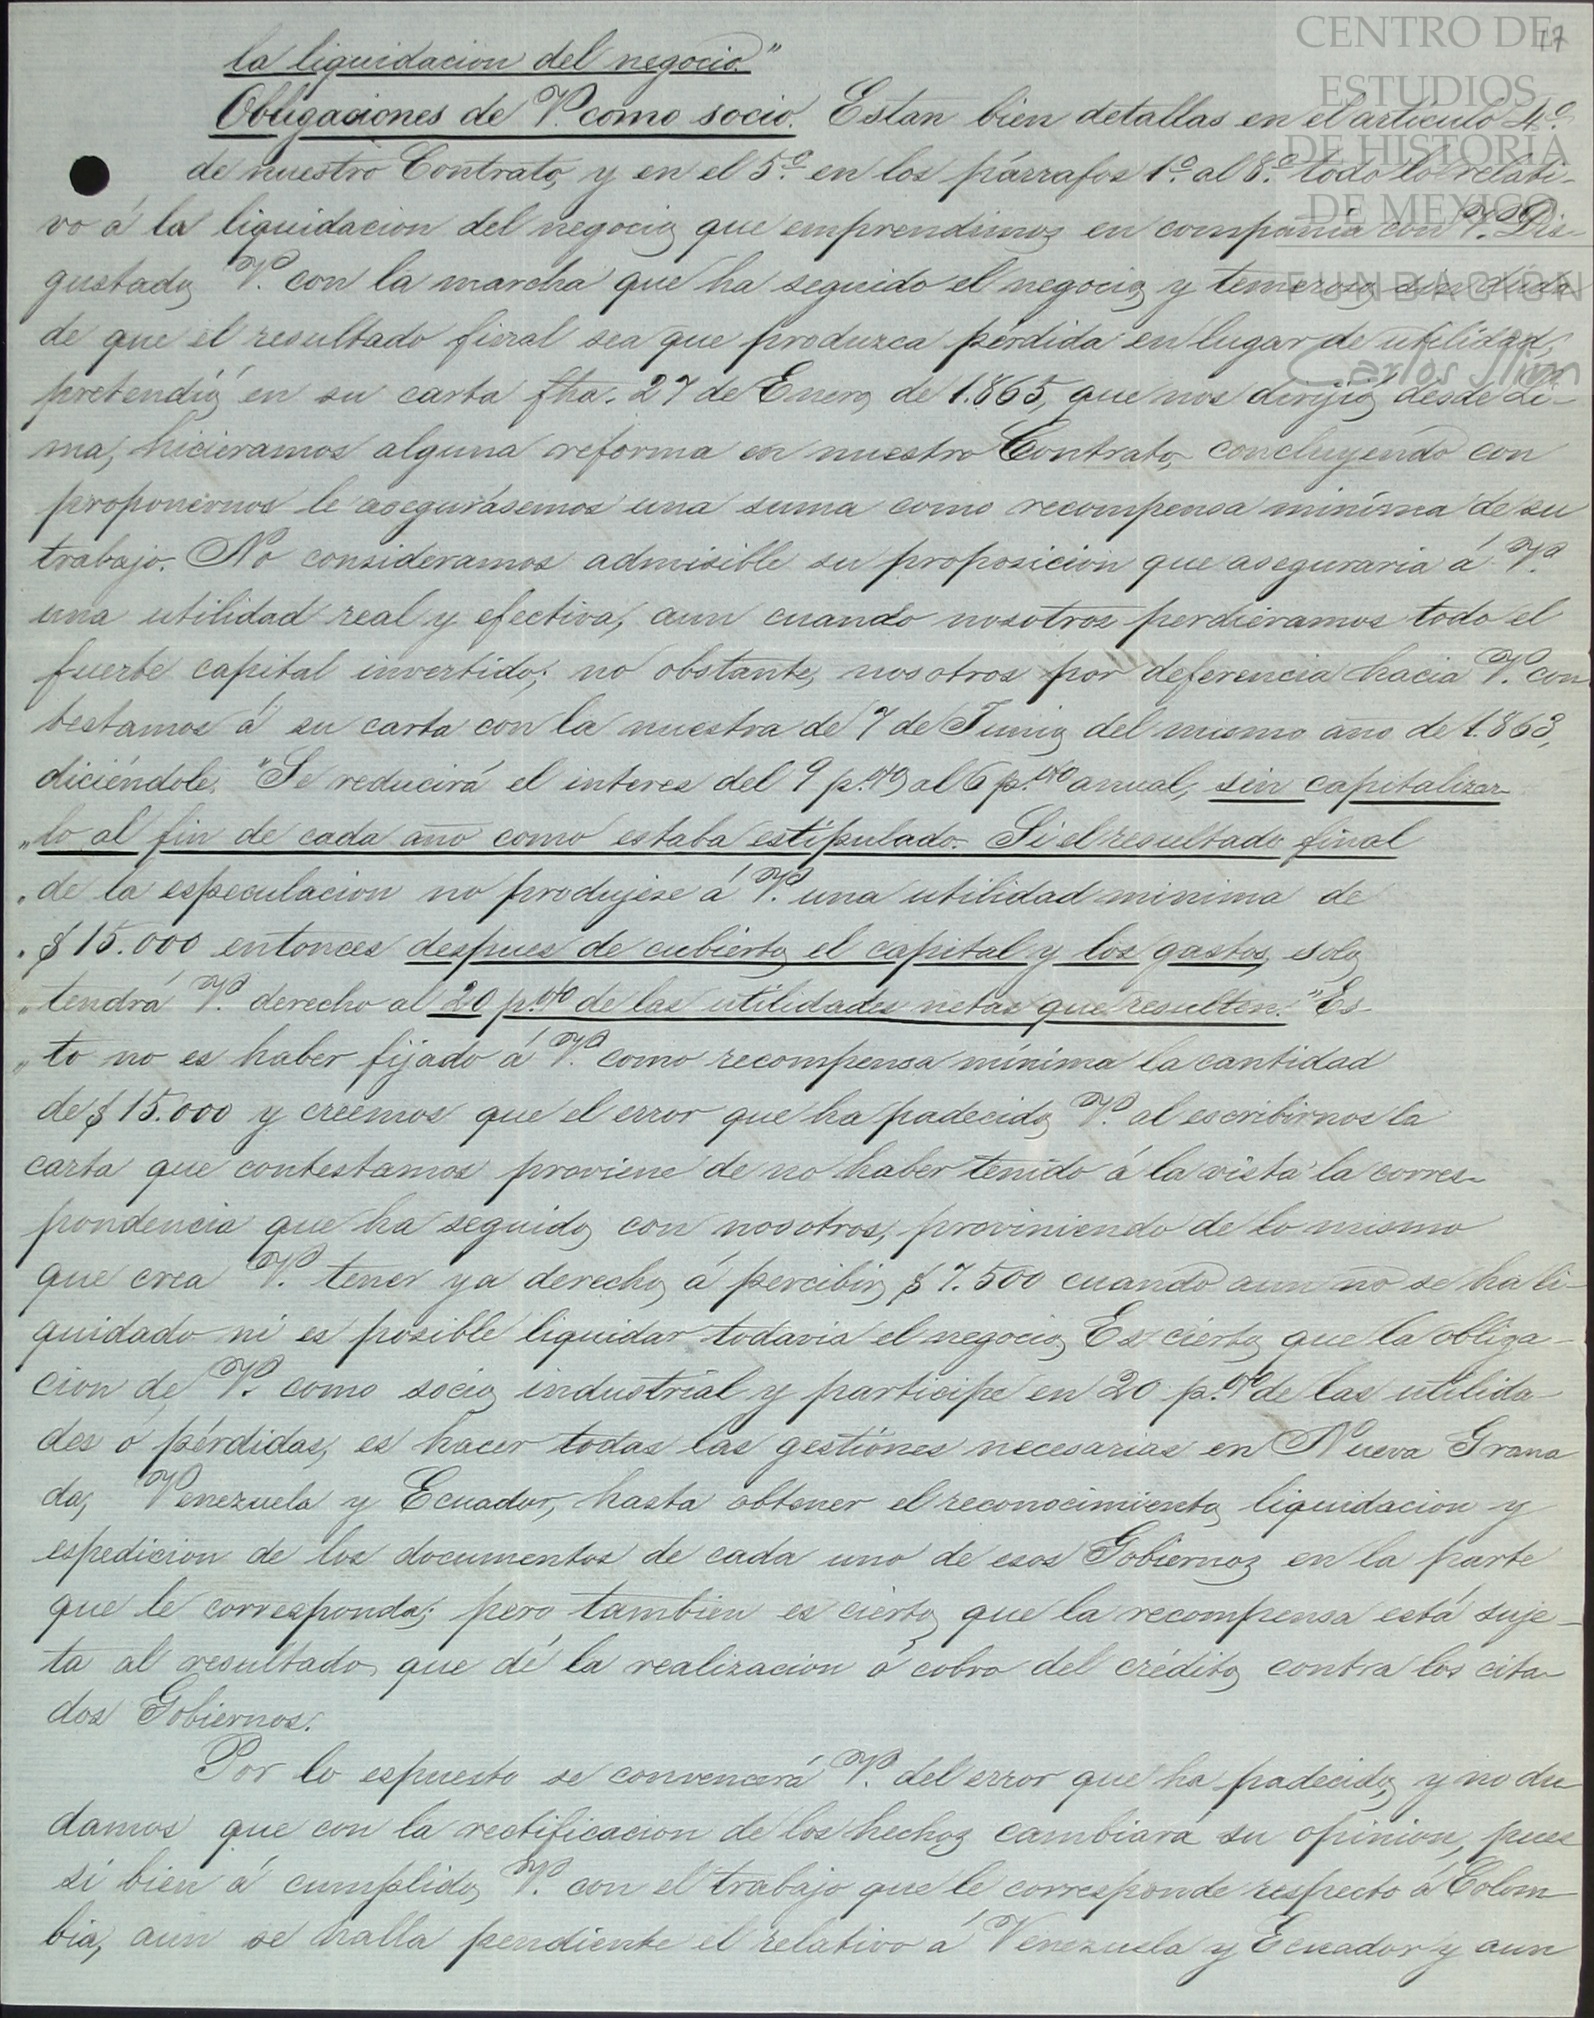 CENTRO DE
ESTUDIOS
DE HISTORIA
DE MEXICO
FUNDACIÓN
Carlos Slim
17
la liquidacion del negocio."
Obligaciones de V. como socio. Estan bien detallas en el artículo 4º.
de nuestro Contrato, y en el 5º. en los párrafos 1º. al 8º. todo lo relati-
vo á la liquidacion del negocio que emprendimos en compañia con V. Dis-
gustado V. con la marcha que ha seguido el negocio, y temeroso sin duda
de que el resultado final sea que produzca pérdida en lugar de utilidad,
pretendió en su carta fha. 27 de Enero de 1.865, que nos dirijió desde Li-
ma, hicieramos alguna reforma en nuestro Contrato, concluyendo con
proponernos le asegurásemos una suma como recompensa mínima de su
trabajo. No consideramos admisible su proposicion que aseguraria á V.
una utilidad real y efectiva, aun cuando nosotros perdieramos todo el
fuerte capital invertido; no obstante, nosotros por deferencia hacia V. con
testamos á su carta con la nuestra de 7 de Junio del mismo año de 1.863,
diciéndole. "Se reducirá el interes del 9 p.% al 6 p.% anual, sin capitalizar-
"lo al fin de cada año como estaba estipulado. Si el resultado final
"de la especulacion no produjese á V. una utilidad minima de
"$15.000 entonces despues de cubierto el capital y los gastos, solo
"tendrá V. derecho al 20 p.% de las utilidades netas que resulten." Es-
"to no es haber fijado á V. como recompensa mínima la cantidad
de $15.000 y creemos que el error que ha padecido V. al escribirnos la
carta que contestamos proviene de no haber tenido á la vista la corres-
pondencia que ha seguido con nosotros, proviniendo de lo mismo
que crea V. tener ya derecho á percibir $7.500 cuando aun no se ha li-
quidado ni es posible liquidar todavia el negocio. Es cierto que la obliga-
cion de V. como socio industrial y participe en 20 p.% de las utilida-
des ó pérdidas, es hacer todas las gestiones necesarias en Nueva Grana
da, Venezuela y Ecuador, hasta obtener el reconocimiento, liquidacion y
espedicion de los documentos de cada uno de esos Gobiernos en la parte
que le corresponda; pero tambien es cierto que la recompensa está suje-
ta al resultado que dé la realizacion ó cobro del crédito contra los cita-
dos Gobiernos.
Por lo espuesto se convencerá V. del error que ha padecido, y no du-
damos que con la rectificacion de los hechos cambiará su opinion, pues
si bien á cumplido V. con el trabajo que le corresponde respecto á Colom-
bia, aun se halla pendiente el relativo á Venezuela y Ecuador y aun